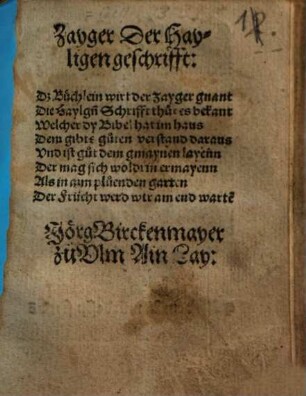 Zayger Der Hay-
ligen geschrifft:
Dz Büchlein wirt der Zayger gnant
Die Haylgñ Schrifft thůt es bekant
Welcher dy Bibel hat im haus
Dem gibt ẽ gůten verstand daraus
Vnd ist gůt dem gmaynen layeñ
Der mag sich wol dꝛin ermayenn
Als in aim plůenden garten
Der Frücht werd wir am end wartẽ
Jörg Birckenmayer
zů Vlm Ain Lay: